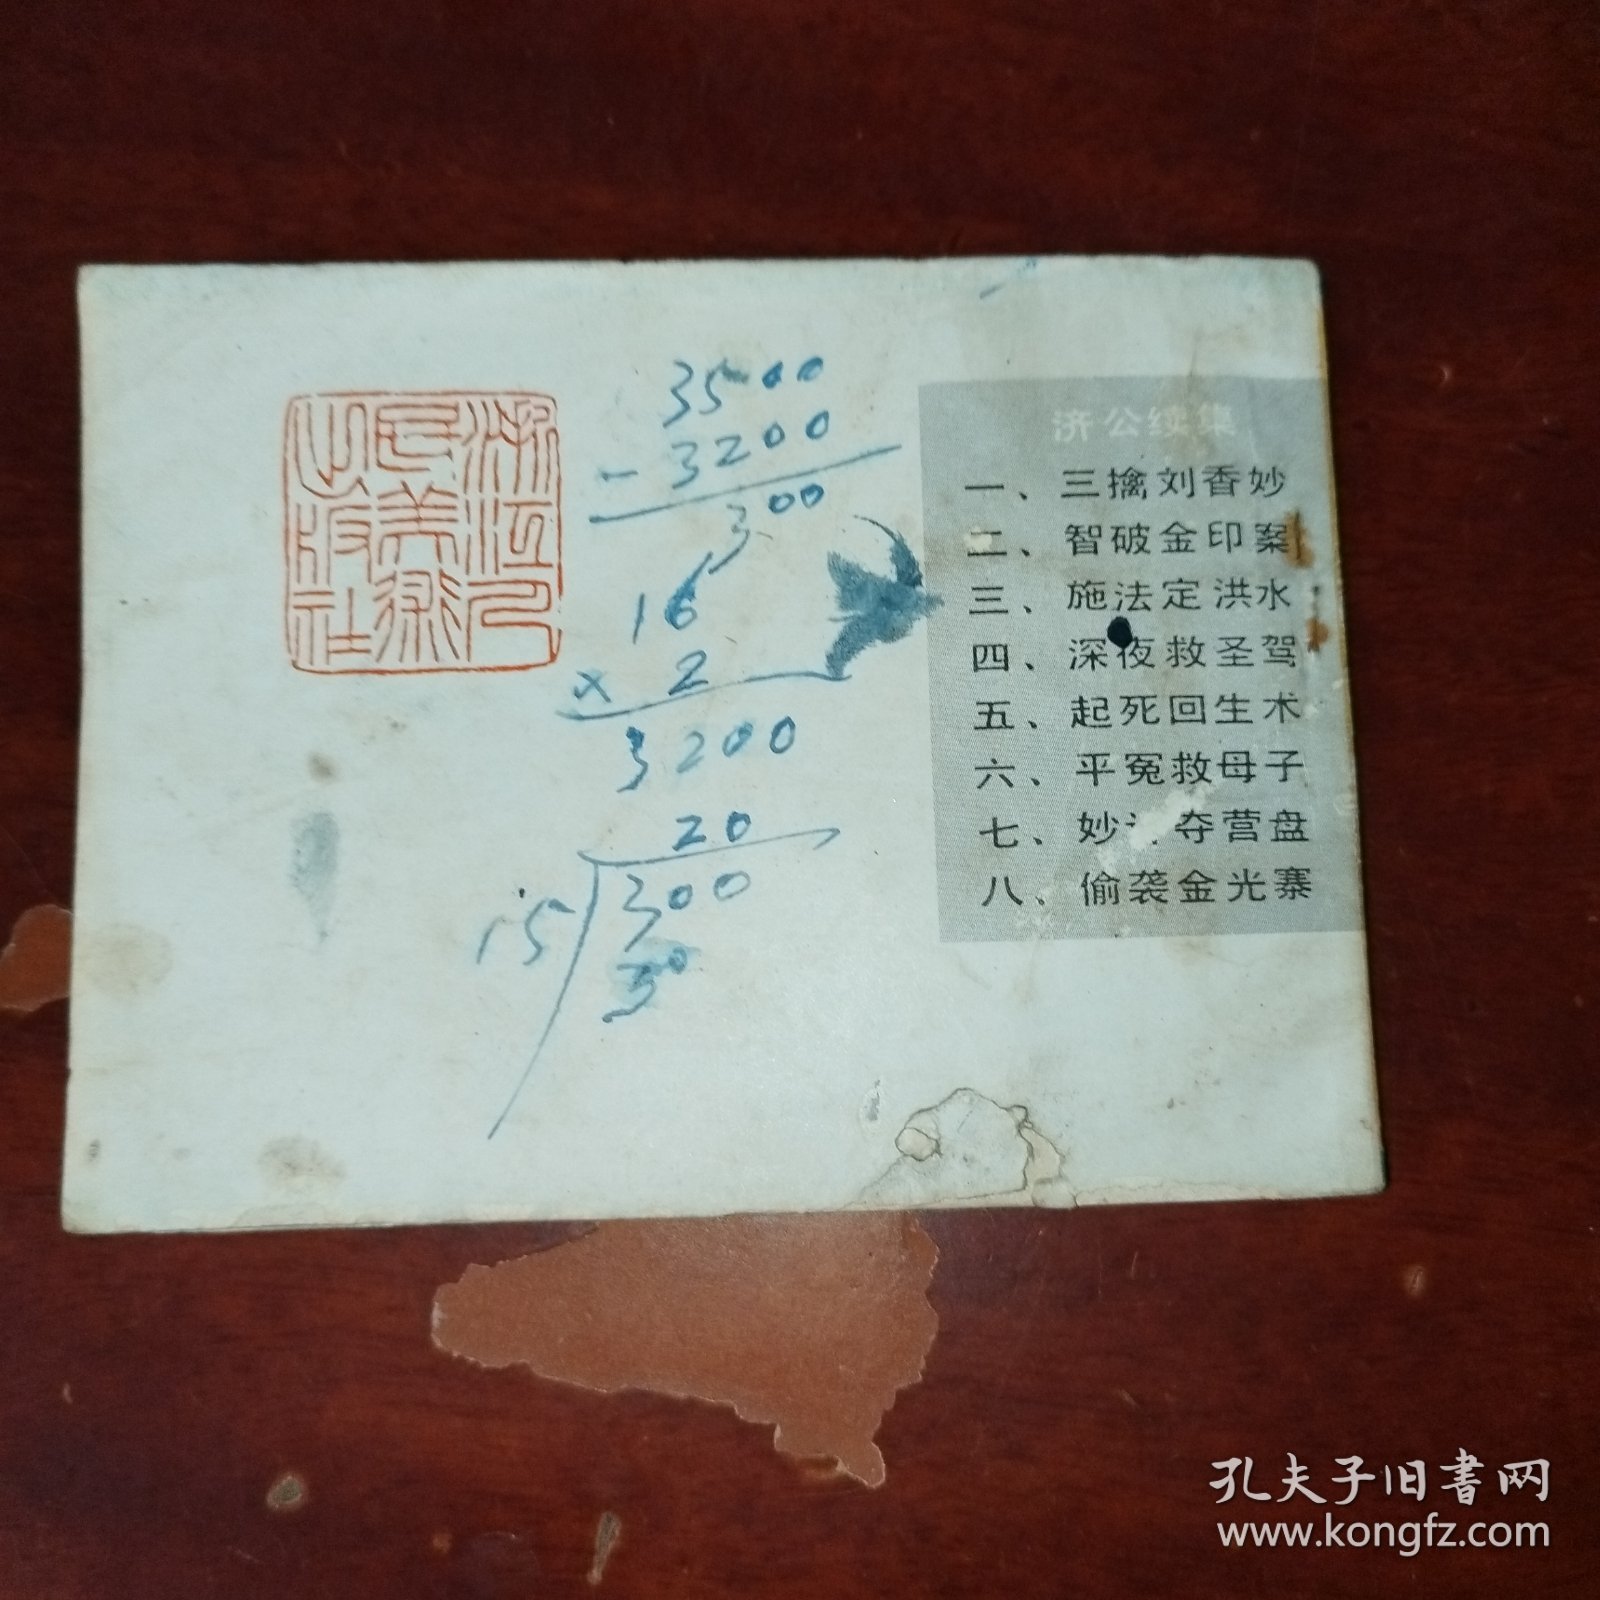 浙江人
民美术
出版社
3500
- 3200
300
16
x 2
3200
20
15 300
30
济公续集
一、三擒刘香妙
二、智破金印案
三、施法定洪水
四、深夜救圣驾
五、起死回生术
六、平冤救母子
七、妙 夺营盘
八、偷袭金光寨
孔夫子旧书网
www.kongfz.com